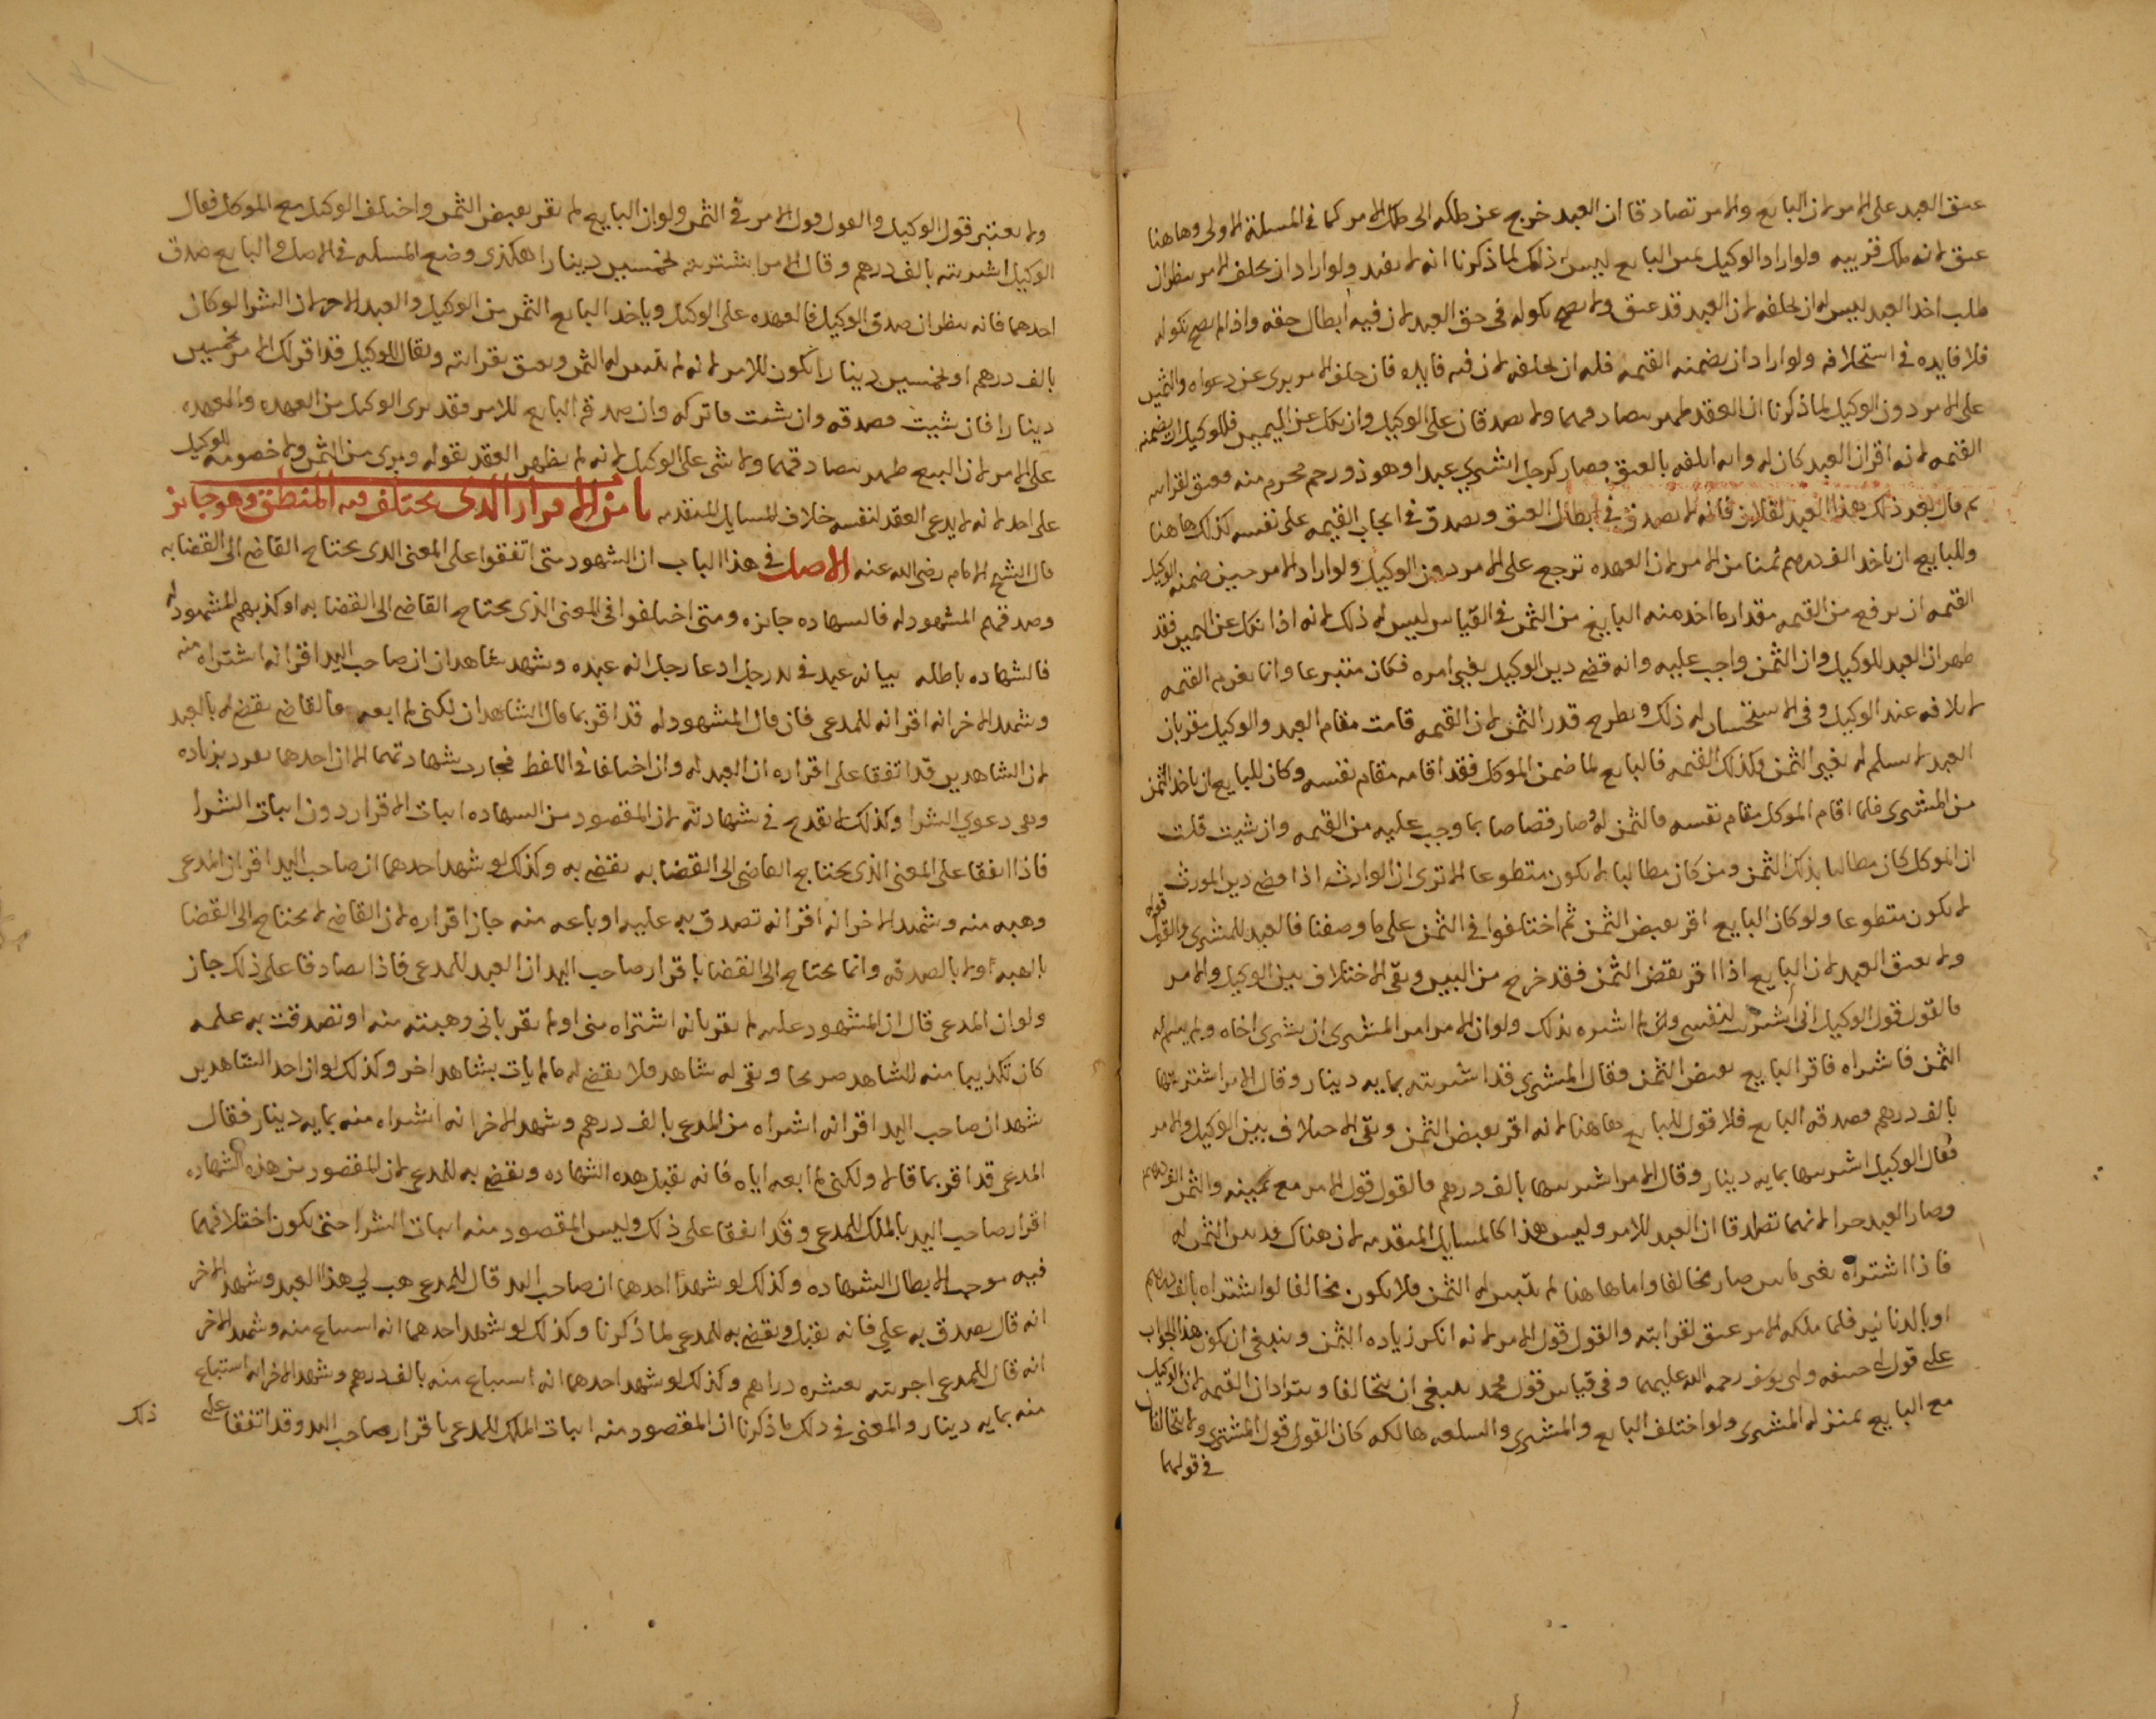 عتق العبد على الامر لان البايع والامر تصادقا ان العبد خرج عن ملكه الى ملك الامر كما في المسئلة الاولى وهاهنا
عتق لانه ملك قريبه ولو اراد الوكيل يمين البايع ليس له ذلك لما ذكرنا انه لا يفيد ولو اراد ان يحلف الامر ينظر ان
طلب اخذ العبد ليس له ان يحلفه لان العبد قد عتق ولا يصح نكوله في حق العبد لان فيه ابطال حقه واذا لم يصح نكوله
فلا فايده في استحلافه ولو اراد ان يضمنه القيمه فله ان يحلفه لان فيه فايده فان حلف الامر برى عن دعواه والثمن
على الامر دون الوكيل لما ذكرنا ان العقد ظهر بتصادقهما ولا يصدقان على الوكيل وان نكل عن اليمين فللوكيل ان يضمنه
القيمه لانه اقر ان العبد كان له وانه اتلفه بالعتق فصار كرجل اشترى عبدا وهو ذو رحم محرم منه فعتق لقرابته
ثم قال بعد ذلك هذا العبد لفلان فانه لا يصدق في ابطال العتق ويصدق في ايجاب القيمه على نفسه كذلك هاهنا
وللبايع ان ياخذ الف درهم ثمنا من الامر لان العهده ترجع على الامر دون الوكيل ولو اراد الامر حين ضمنه الوكيل
القيمه ان يرفع من القيمه مقدار ما اخذ منه البايع من الثمن في القياس ليس له ذلك لانه اذا نكل عن اليمين فقد
ظهر ان العبد للوكيل وان الثمن واجب عليه وانه قضى دين الوكيل بغير امره فكان متبرعا وانما يغرم القيمه
لاتلافه عبد الوكيل وفي الاستحسان له ذلك ويطرح قدر الثمن لان القيمه قامت مقام العبد والوكيل مقر بان
العبد لا يسلم له بغير الثمن وكذلك القيمه فالبايع لما ضمن الموكل فقد اقامه مقام نفسه وكان للبايع ان ياخذ الثمن
من المشترى فلما اقام الموكل مقام نفسه فالثمن له وصار قصاصا بما وجب عليه من القيمه وان شيت قلت
ان الموكل كان مطالبا بذلك الثمن ومن كان مطالبا لا يكون متطوعا الا ترى ان الوارث اذا قضى دين المورث
لا يكون متطوعا ولو كان البايع اقر بقبض الثمن ثم اختلفوا في الثمن على ما وصفنا فالعبد للمشترى والقول قوله
ولا يعتق العبد لان البايع اذا اقر بقبض الثمن فقد خرج من البين وبقى الاختلاف بين الوكيل والامر
فالقول قول الوكيل انى اشتريت لنفسى وانى لم اشتره بذلك ولو ان الامر امر المشترى ان يشترى اخاه ولم يسم له
الثمن فاشتراه فاقر البايع بقبض الثمن فقال المشترى قد اشتريته بمايه دينار وقال الامر اشتريتها
بالف درهم فصدقه البايع فلا قول للبايع هاهنا لانه اقر بقبض الثمن وبقى الاختلاف بين الوكيل والامر
فقال الوكيل اشتريتها بمايه دينار وقال الامر اشتريتها بالف درهم فالقول قول الامر مع يمينه والثمن الف درهم
وصار العبد حرا لانهما تصادقا ان العبد للامر وليس هذا كالمسايل المتقدمه لان هناك قد بين الثمن له
فاذا اشتراه بغير ما بين صار مخالفا واما هاهنا لم يبين له الثمن فلا يكون مخالفا لو اشتراه بالف درهم
او بالدنانير فلما ملكه الامر عتق لقرابته والقول قول الامر لانه انكر زياده الثمن وينبغى ان يكون هذا الجواب
على قول ابى حنيفه وابى يوسف رحمه الله عليهما وفي قياس قول محمد ينبغى ان يتحالفا ويترادان القيمه لان الوكيل
مع البايع بمنزله المشترى ولو اختلف البايع والمشترى والسلعه هالكه كان القول قول المشترى ولا يتحالفان
في قولهما
ولا يعتبر قول الوكيل والقول قول الامر في الثمن ولو ان البايع لم يقر بقبض الثمن واختلف الوكيل مع الموكل فقال
الوكيل اشتريته بالف درهم وقال الامر اشتريته بخمسين دينارا هكذى وضع المسئله في الاصل والبايع صدق
احدهما فانه ينظر ان صدق الوكيل فالعهده على الوكيل وياخذ البايع الثمن من الوكيل والعبد للامر لان الشرا لو كان
بالف درهم او بخمسين دينارا يكون للامر لانه لم يبين له الثمن ويعتق بقرابته ويقال للوكيل قد اقر لك الامر بخمسين
دينارا فان شيت فصدقه وان شيت فاتركه وان صدق البايع للامر فقد برى الوكيل من العهده والعهده
على الامر لان البيع ظهر بتصادقهما ولا شى على الوكيل لانه لم يظهر العقد بقوله وبرى من الثمن ولا خصومه للوكيل
على احد لانه لا يدعى العقد لنفسه خلاف المسايل المتقدمه باب من الاقرار الذى يختلف فيه المنطق وهو جايز
قال الشيخ الامام رضى الله عنه الاصل في هذا الباب ان الشهود متى اتفقوا على المعنى الذى يحتاج القاضى الى القضا به
وصدقهم المشهود له فالشهاده جايزه ومتى اختلفوا في المعنى الذى يحتاج القاضى الى القضا به او كذبهم المشهود له
فالشهاده باطله بيانه عبد في يد رجل ادعا رجل انه عبده وشهد شاهدان ان صاحب اليد اقر انه اشتراه منه
وشهد الاخر انه اقر انه للمدعى فان قال المشهود له قد اقر بما قال الشاهدان لكنى لم ابعه فالقاضى يقضى له بالعبد
لان الشاهدين قد اتفقا على اقراره ان العبد له وان اختلفا في اللفظ فجازت شهادتهما الا ان احدهما تفرد بزياده
وهى دعوى الشرا وكذلك لا تقدح في شهادته لان المقصود من الشهاده اثبات الاقرار دون اثبات الشرا
فاذا اتفقا على المعنى الذى يحتاج القاضى الى القضا به يقضى به وكذلك لو شهد احدهما ان صاحب اليد اقر ان المدعى
وهبه منه وشهد الاخر انه اقر انه تصدق به عليه او باعه منه جاز اقراره لان القاضى لا يحتاج الى القضا
بالهبه ولا بالصدقه وانما يحتاج الى القضا باقرار صاحب اليد ان العبد للمدعى فاذا تصادقا على ذلك جاز
ولو ان المدعى قال ان المشهود عليه لم يقر بانه اشتراه منى او لم يقر بانى وهبته منه او تصدقت به عليه
كان تكذيبا منه للشاهد صريحا وبقى له شاهد فلا يقضى له ما لم يات بشاهد اخر وكذلك لو ان احد الشاهدين
شهد ان صاحب اليد اقر انه اشتراه من المدعى بالف درهم وشهد الاخر انه اشتراه منه بمايه دينار فقال
المدعى قد اقر بما قالا ولكنى لم ابعه اياه فانه تقبل هذه الشهاده ويقضى به للمدعى لان المقصود من هذه الشهاده
اقرار صاحب اليد بالملك للمدعى وقد اتفقا على ذلك وليس المقصود منه اثبات الشرا حتى يكون اختلافهما
فيه موجبا لابطال الشهاده وكذلك لو شهد احدهما ان صاحب اليد قال للمدعى هب لي هذا العبد وشهد الاخر
انه قال تصدق به علي فانه تقبل ويقضى به للمدعى لما ذكرنا وكذلك لو شهد احدهما انه استباع منه وشهد الاخر
انه قال للمدعى اجرته بعشره دراهم وكذلك لو شهد احدهما انه استباع منه بالف درهم وشهد الاخر انه استباع
منه بمايه دينار والمعنى في ذلك ما ذكرنا ان المقصود منه اثبات الملك للمدعى باقرار صاحب اليد وقد اتفقا على
ذلك